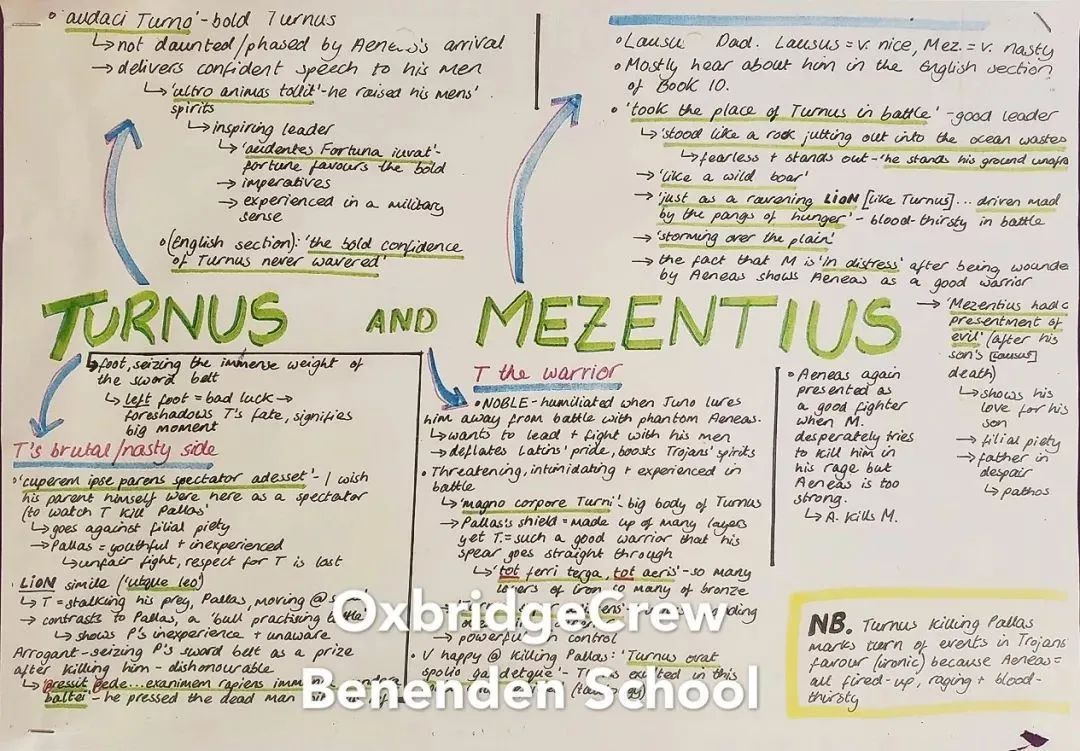 'audaci Turno' - bold Turnus
↳ not daunted/phased by Aeneas's arrival
→ delivers confident speech to his men
↳ 'ultro animos tollit' - he raised his mens'
spirits
↳ inspiring leader
↳ 'audentes Fortuna iuvat' -
fortune favours the bold
→ imperatives
→ experienced in a military
sense
(English section): 'the bold confidence
of Turnus never wavered'
Dad. Lausus = v. nice, Mez. = v. nasty
Mostly hear about him in the English section
of Book 10.
'took the place of Turnus in battle' - good leader
↳ 'stood like a rock jutting out into the ocean wastes
↳ fearless + stands out - 'he stands his ground
→ 'like a wild boar'
→ 'just as a ravening LION [like Turnus]... driven mad
by the pangs of hunger' - blood-thirsty in battle
→ 'storming over the plain'
→ the fact that M is 'in distress' after being
by Aeneas shows Aeneas as a good warrior
→ 'Mezentius had
presentment of
evil' (after his
son's [Lausus]
death)
↳ shows his
love for his
son
→ filial piety
→ father in
despair
↳ pathos
TURNUS AND MEZENTIUS
foot, seizing the immense weight of
the sword belt
↳ left foot = bad luck →
foreshadows T's fate, signifies
big moment
T's brutal/nasty side
'cuperem ipse parens spectator adesset' - I wish
his parent himself were here as a spectator
(to watch T kill Pallas'
↳ goes against filial piety
→ Pallas = youthful + inexperienced
↳ unfair fight, respect for T is lost
LION simile ('utque leo')
↳ T = stalking his prey, Pallas, moving @
→ contrasts to Pallas, a 'bull practising
↳ shows P's inexperience + unaware
Arrogant - seizing P's sword belt as a prize
after killing him - dishonourable
↳ pressit pede... exanimem rapiens
baltei - he pressed the dead man
T the warrior
NOBLE - humiliated when Juno lures
him away from battle with phantom Aeneas.
↳ wants to lead + fight with his men
→ deflates Latins' pride, boosts Trojans' spirits
Threatening, intimidating + experienced in
battle
↳ 'magno corpore Turni' - big body of Turnus
→ Pallas's shield = made up of many layers
yet T. = such a good warrior that his
spear goes straight through
↳ 'tot ferri terga, tot aeris' - so many
layers of iron so many of bronze
→ powerful in control
V happy @ killing Pallas: 'Turnus ovat
spolio gaudetque' - exulted in this
Aeneas again
presented as
a good fighter
when M.
desperately tries
to kill him in
his rage but
Aeneas is too
strong.
↳ A. kills M.
NB. Turnus killing Pallas
marks turn of events in Trojans
favour (ironic) because Aeneas =
all fired-up, raging + blood-
thirsty
OxbridgeCrew
Benenden School